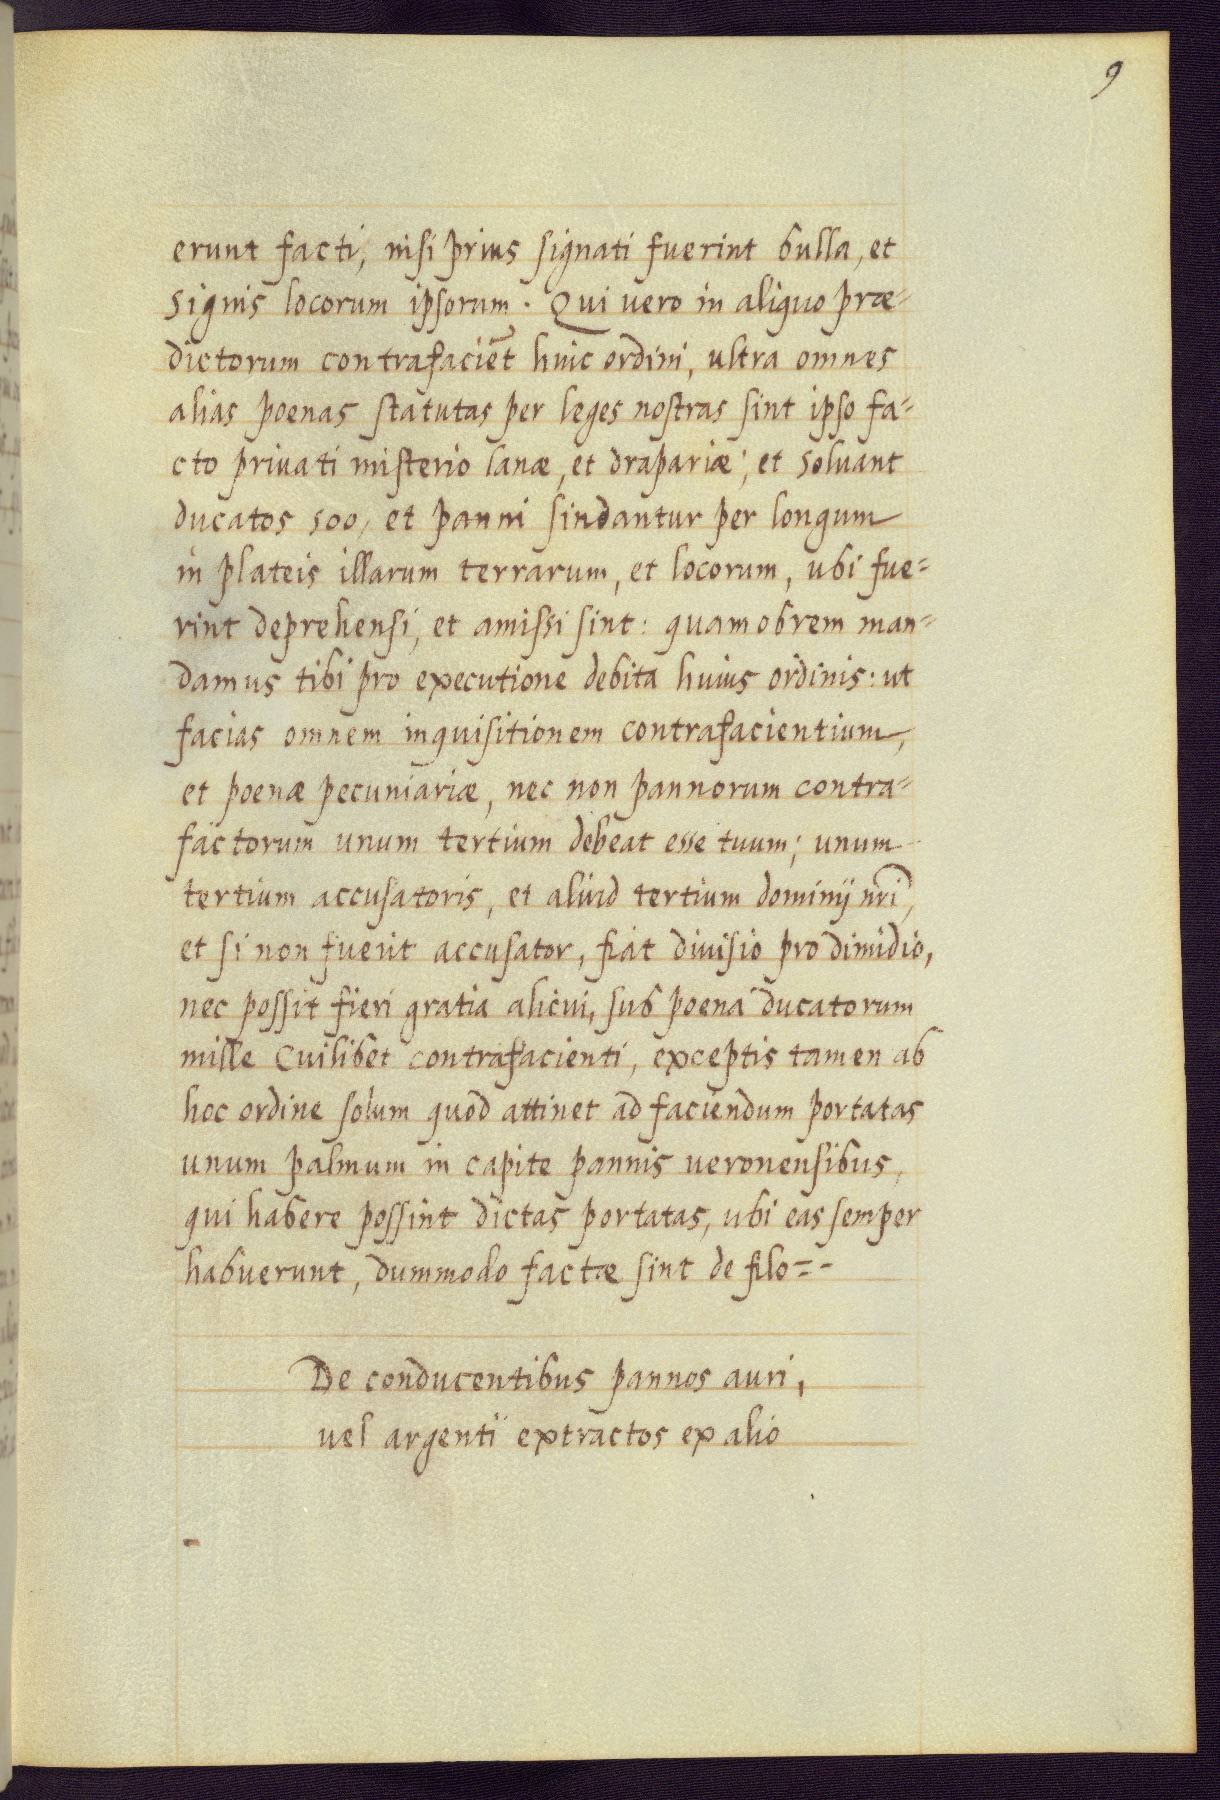 9
erunt facti, nisi prius signati fuerint bulla, et
signis locorum ipsorum. Qui vero in aliquo præ=
dictorum contrafaciēt huic ordini, ultra omnes
alias poenas statutas per leges nostras sint ipso fa=
cto privati misterio lanæ, et drapariæ; et solvant
ducatos 500, et panni sindantur per longum
in plateis illarum terrarum, et locorum, ubi fue=
rint deprehensi, et amissi sint: quamobrem man=
damus tibi pro executione debita huius ordinis: ut
facias omnem inquisitionem contrafacientium,
et poenæ pecuniariæ, nec non pannorum contra=
factorum unum tertium debeat esse tuum; unum
tertium accusatoris, et aliud tertium dominij nr̄i,
et si non fuerit accusator, fiat divisio pro dimidio,
nec possit fieri gratia alicui, sub poena ducatorum
mille cuilibet contrafacienti, exceptis tamen ab
hoc ordine solum quod attinet ad faciendum portatas
unum palmum in capite pannis veronensibus,
qui habere possint dictas portatas, ubi eas semper
habuerunt, dummodo factæ sint de filo=-
De conducentibus pannos auri,
vel argenti extractos ex alio